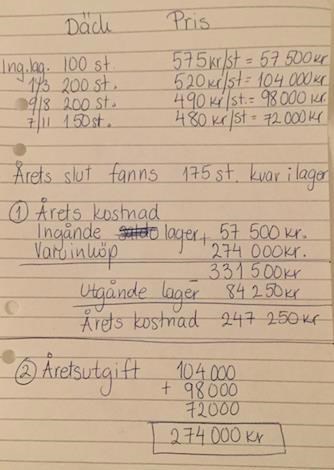 Däck Pris
Ing.lag. 100 st. 575kr/st = 57 500kr
1/3 200 st. 520kr/st = 104 000kr
9/8 200 st. 490kr/st.= 98000kr
7/11 150st. 480kr/st= 72000kr
Årets slut fanns 175 st. kvar i lager
① Årets kostnad
Ingående lager + 57 500kr.
Varuinköp 274 000kr.
331 500kr
Utgånde lager - 84 250kr
Årets kostnad 247 250kr
② Åretsutgift 104000
+ 98000
72000
274 000 kr